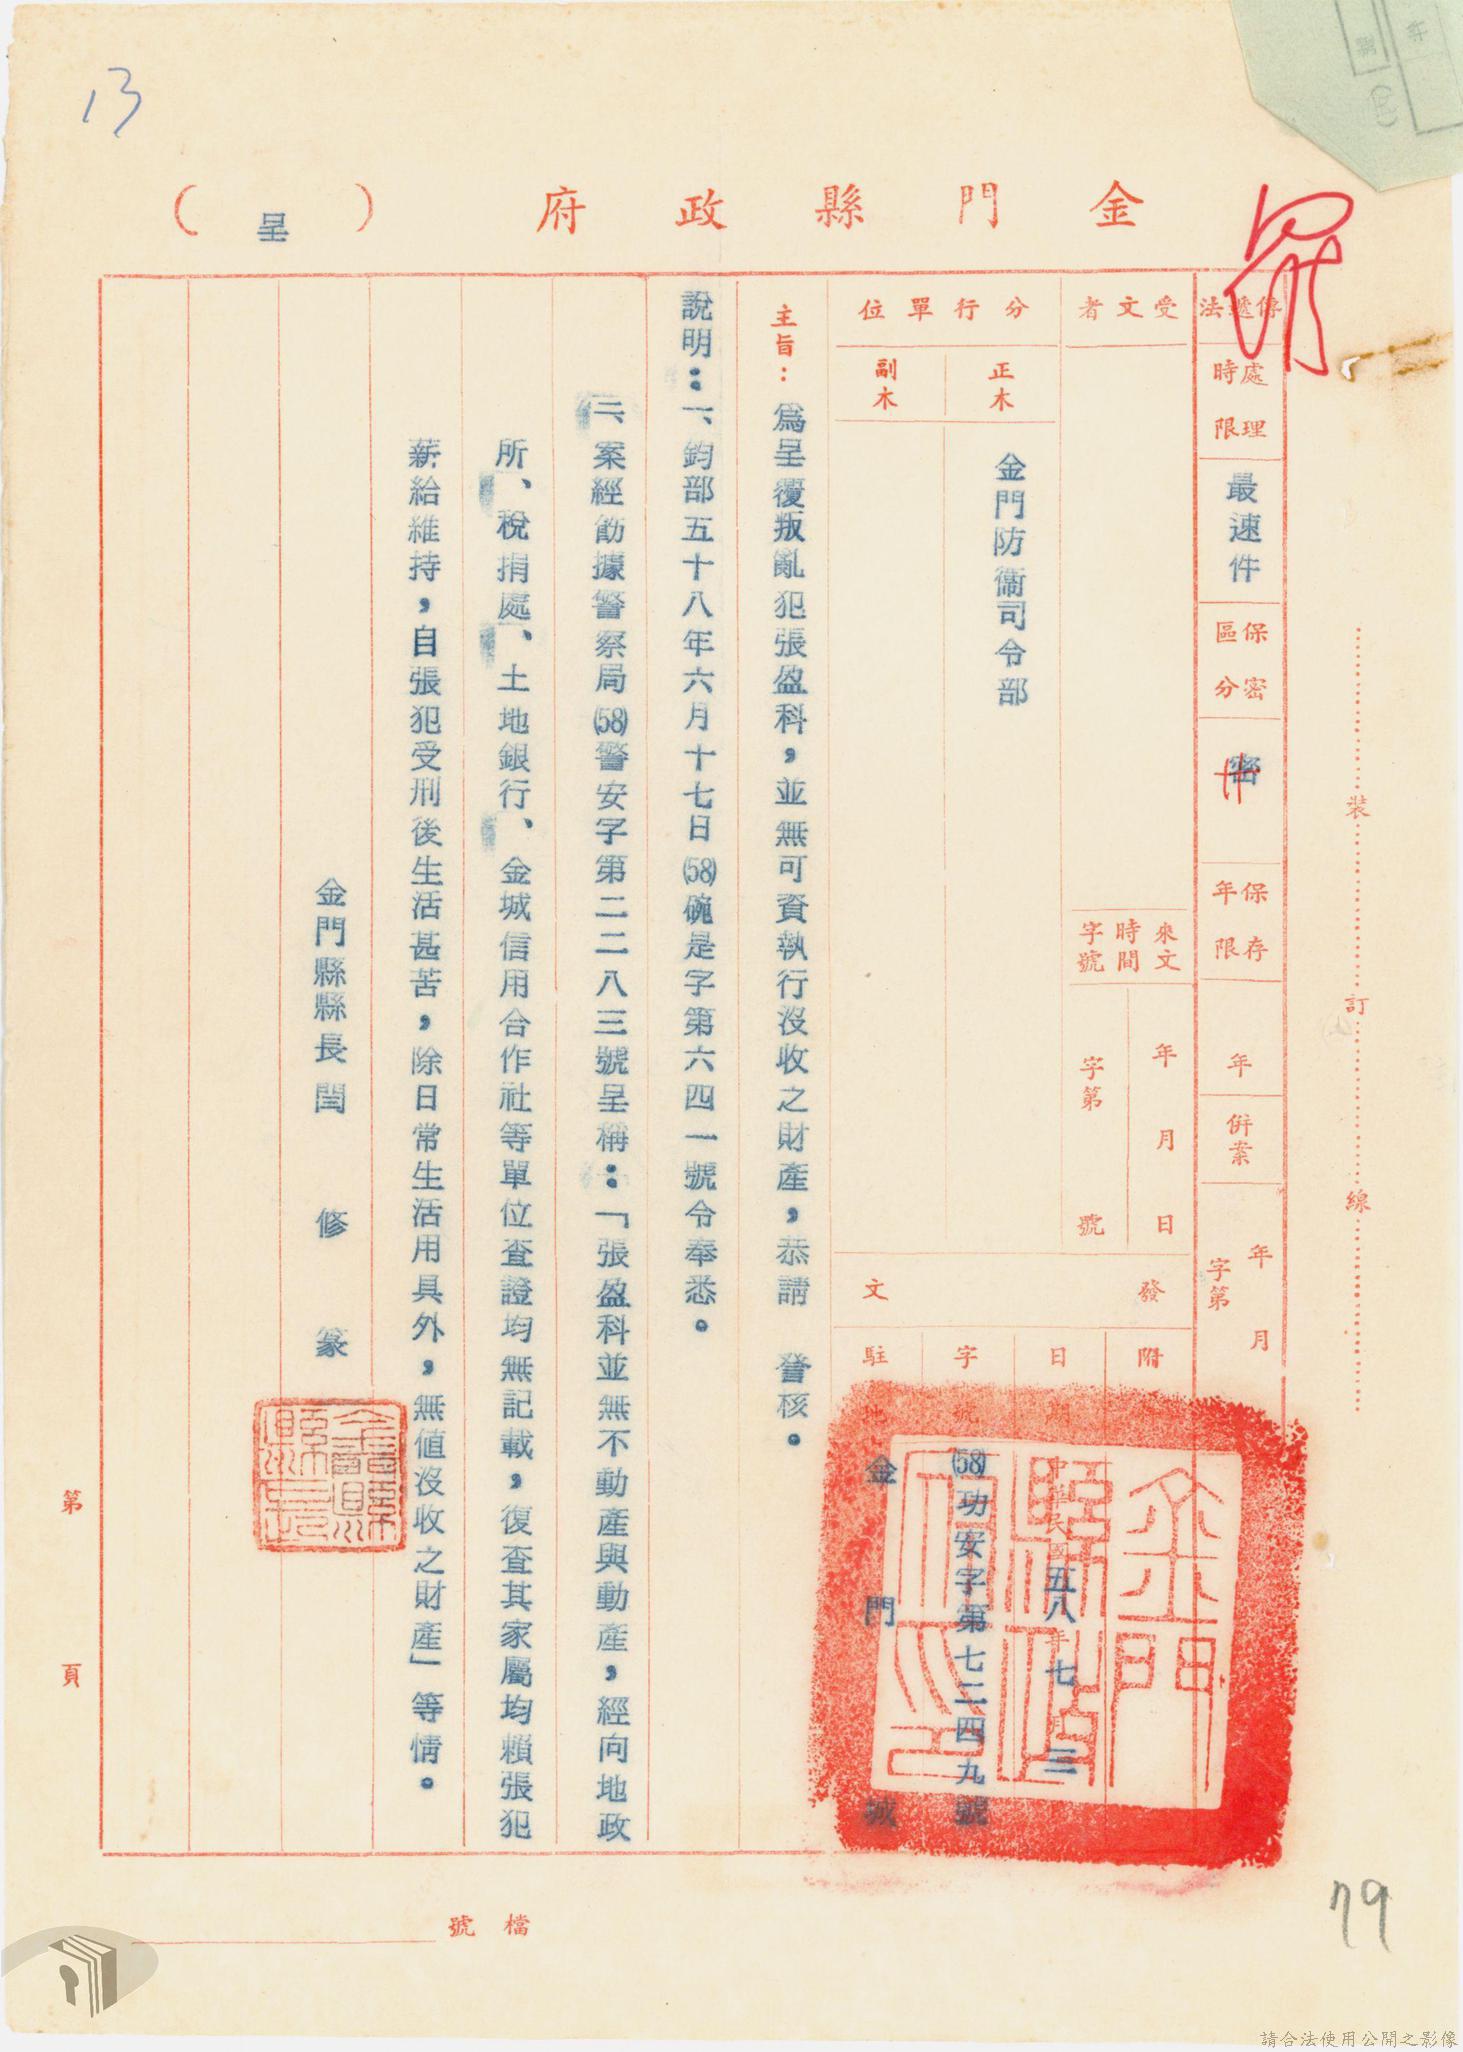 13
金門縣政府（呈）
傳遞法
處理時限
最速件
保密區分
密
保存年限
年
併案
年 月
字第
受文者
來文
時間
字號
年 月 日
字第 號
分行單位
正本
副本
金門防衛司令部
發文
附
日期
中華民國五八年七月三
字號
(58)功安字第七二四九號
駐地
金門城
主旨：為呈覆叛亂犯張盈科，並無可資執行沒收之財產，恭請 詧核。
說明：一、鈞部五十八年六月十七日(58)確是字第六四一號令奉悉。
二、案經飭據警察局(58)警安字第二二八三號呈稱：「張盈科並無不動產與動產，經向地政
所、稅捐處、土地銀行、金城信用合作社等單位查證均無記載，復查其家屬均賴張犯
薪給維持，自張犯受刑後生活甚苦，除日常生活用具外，無值沒收之財產」等情。
金門縣縣長閻 修 篆
裝 訂 線
第 頁
檔號
79
請合法使用公開之影像